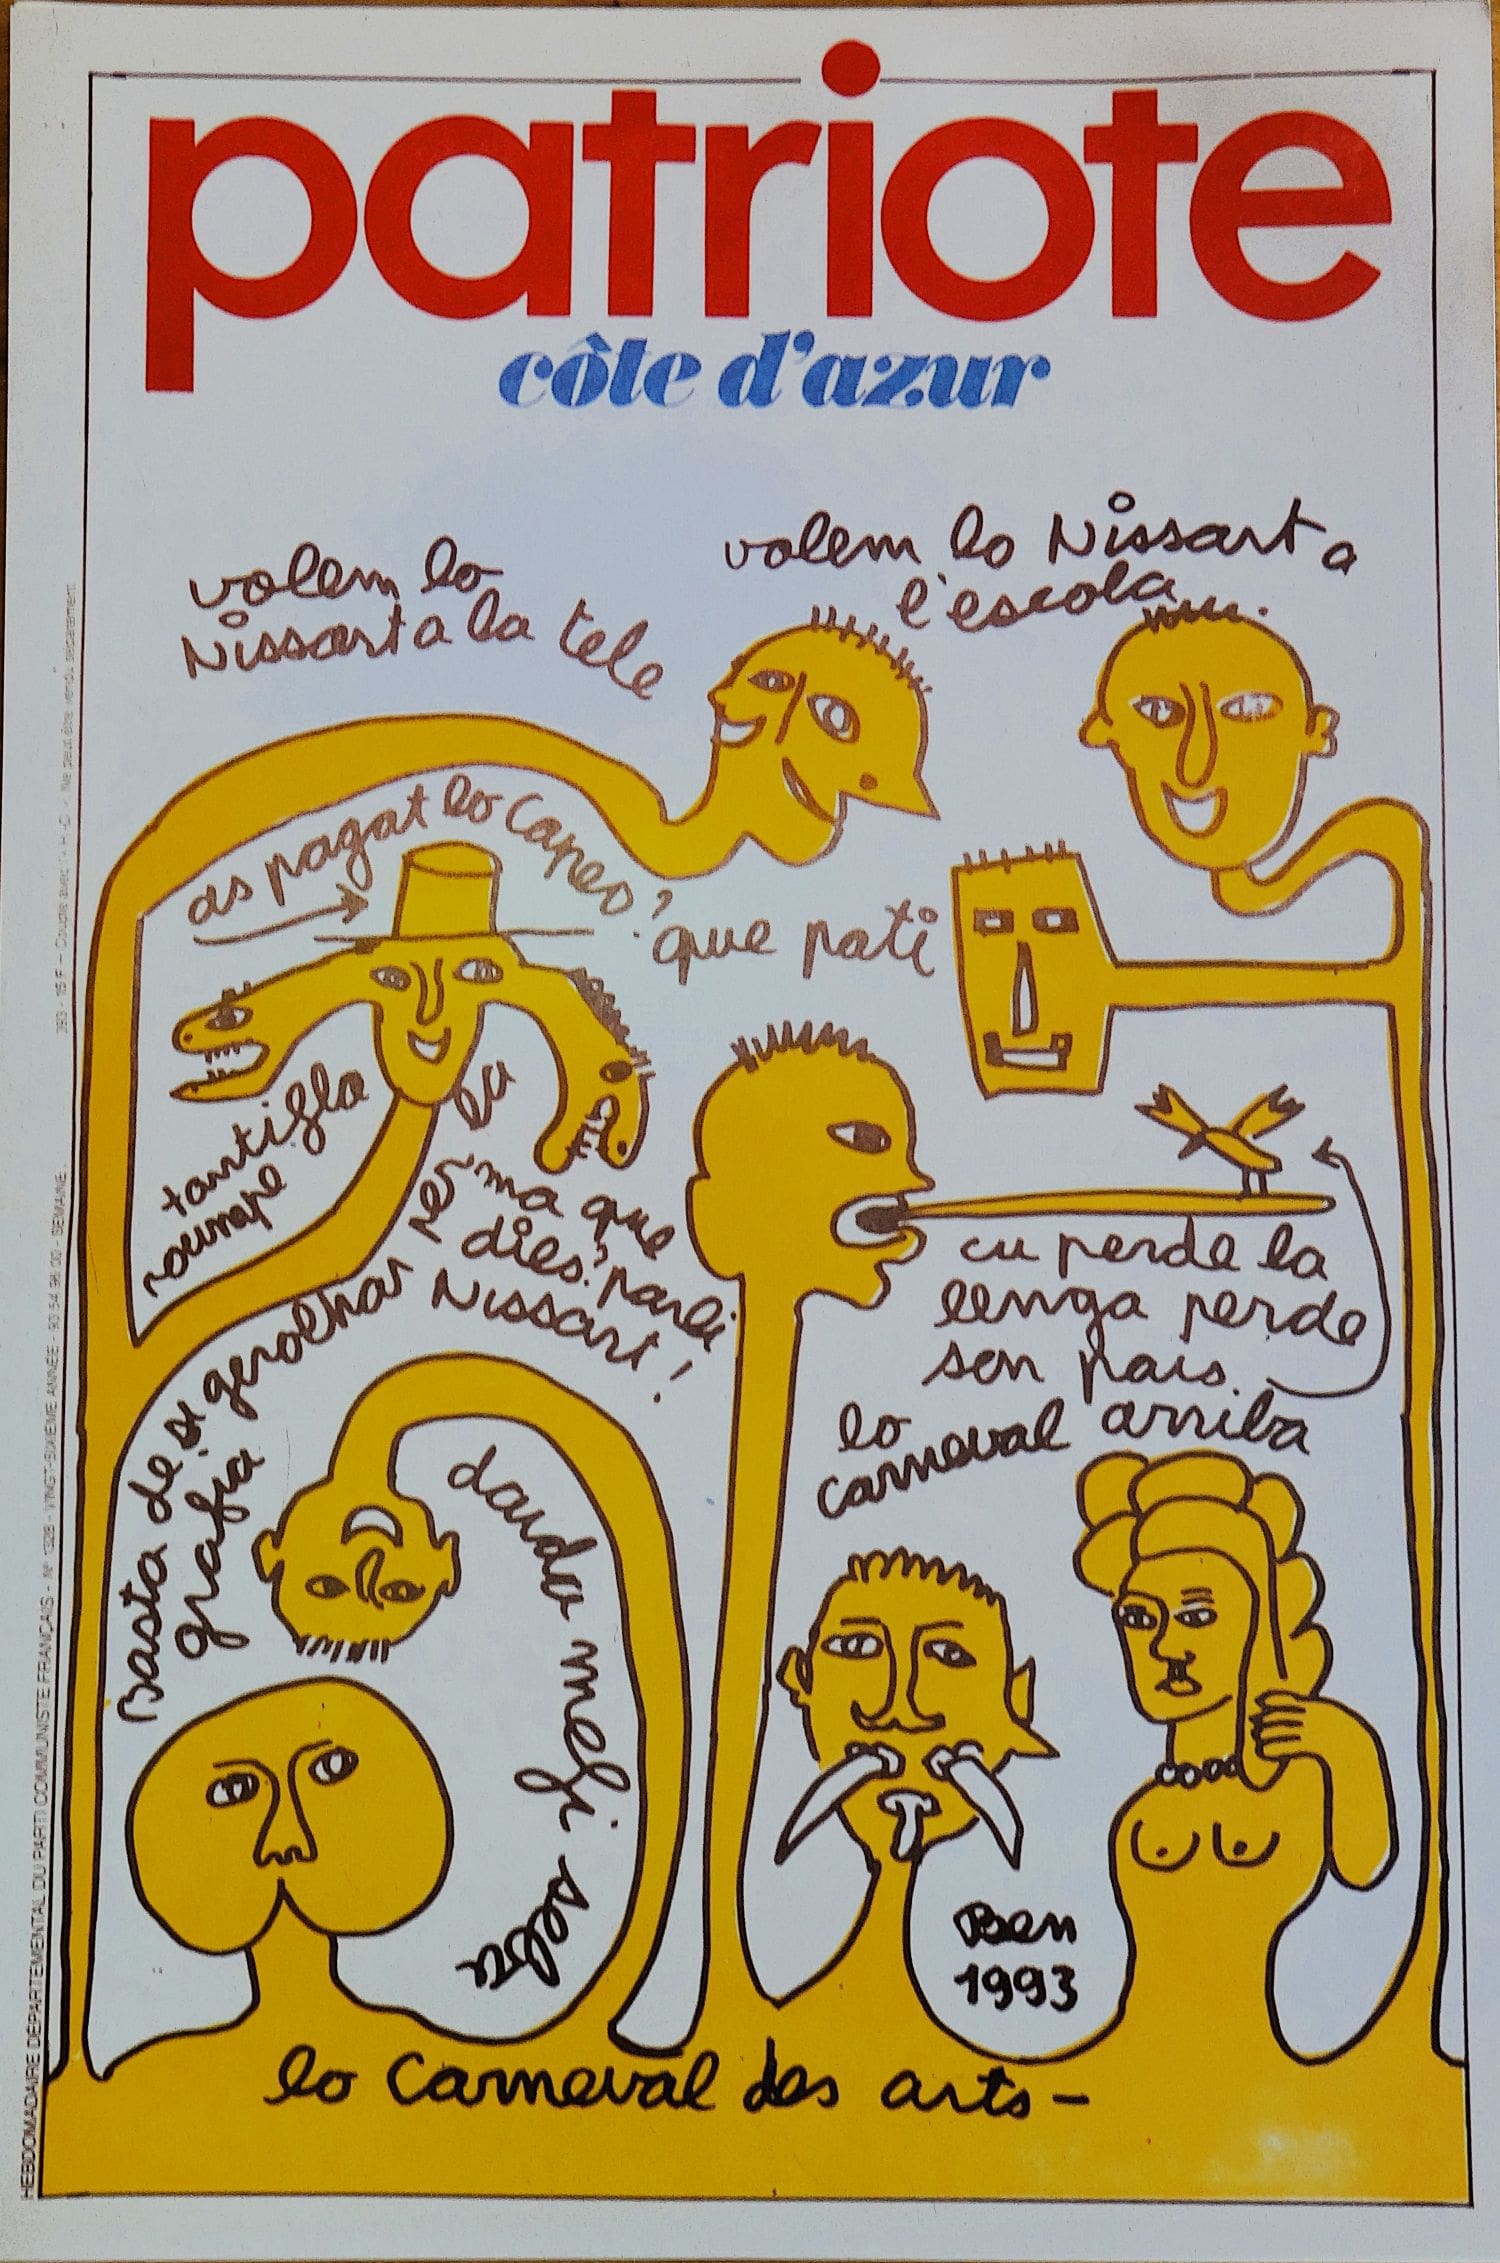 patriote
côte d'azur
volem lo
Nissart a la tele
volem lo Nissart a
l'escola
as pagat lo capeo?
que pati
tantifla
roumpe
ma que
dies? parli
Nissart!
Basta de se gerolhar per la
grafia
cu perde la
lenga perde
son païs.
lo
carneval arriba
daida mefi selva
Ben
1993
lo carneval des arts -
HEBDOMADAIRE DÉPARTEMENTAL DU PARTI COMMUNISTE FRANÇAIS - N° 1328 - VINGT-SIXIÈME ANNÉE - 93 54 96 00 - SEMAINE
393 - 15 F - Couplé avec l'« H.-D. » - Ne peut être vendu séparément